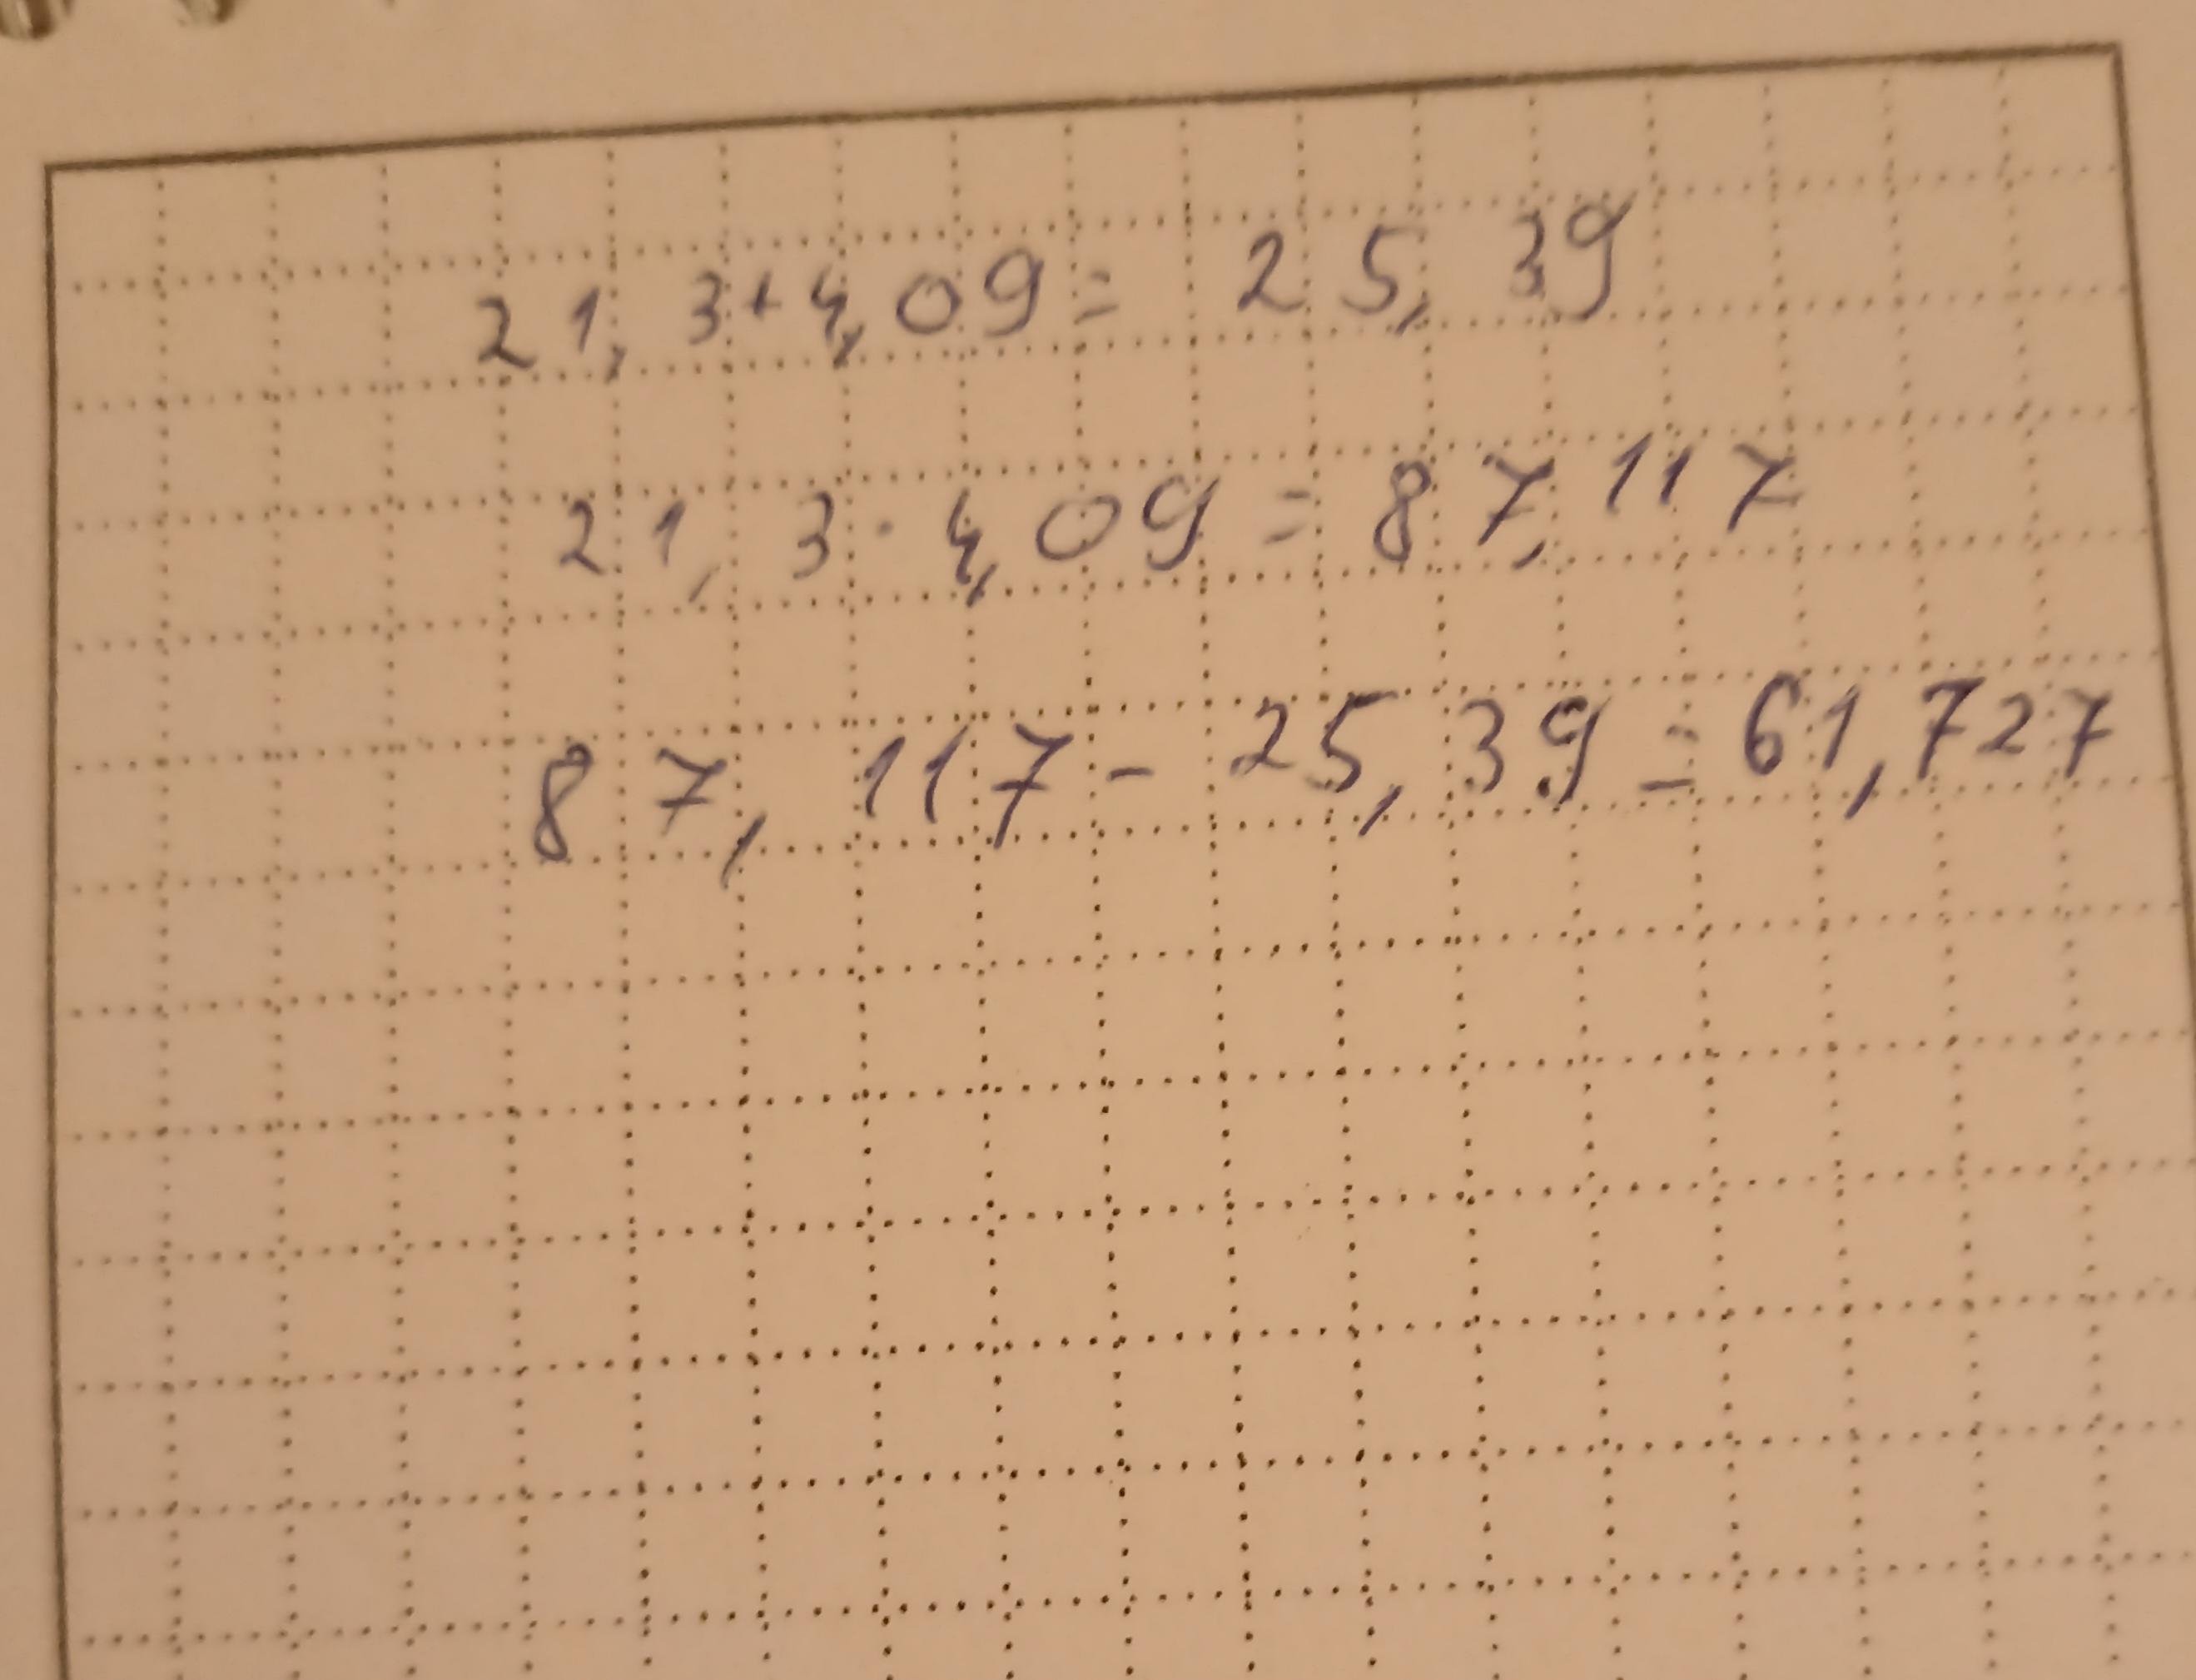 21,3+4,09= 25,39
21,3·4,09=87,117
87,117-25,39=61,727